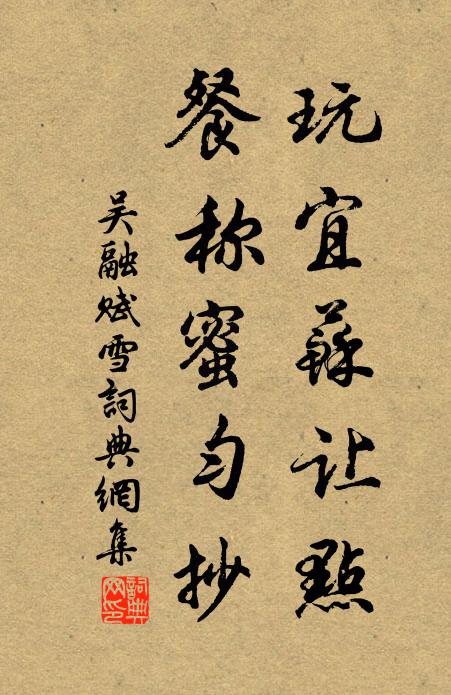 玩宜蘇让點
餐称蜜匀抄
吴融赋雪詞典網集
詞典網印